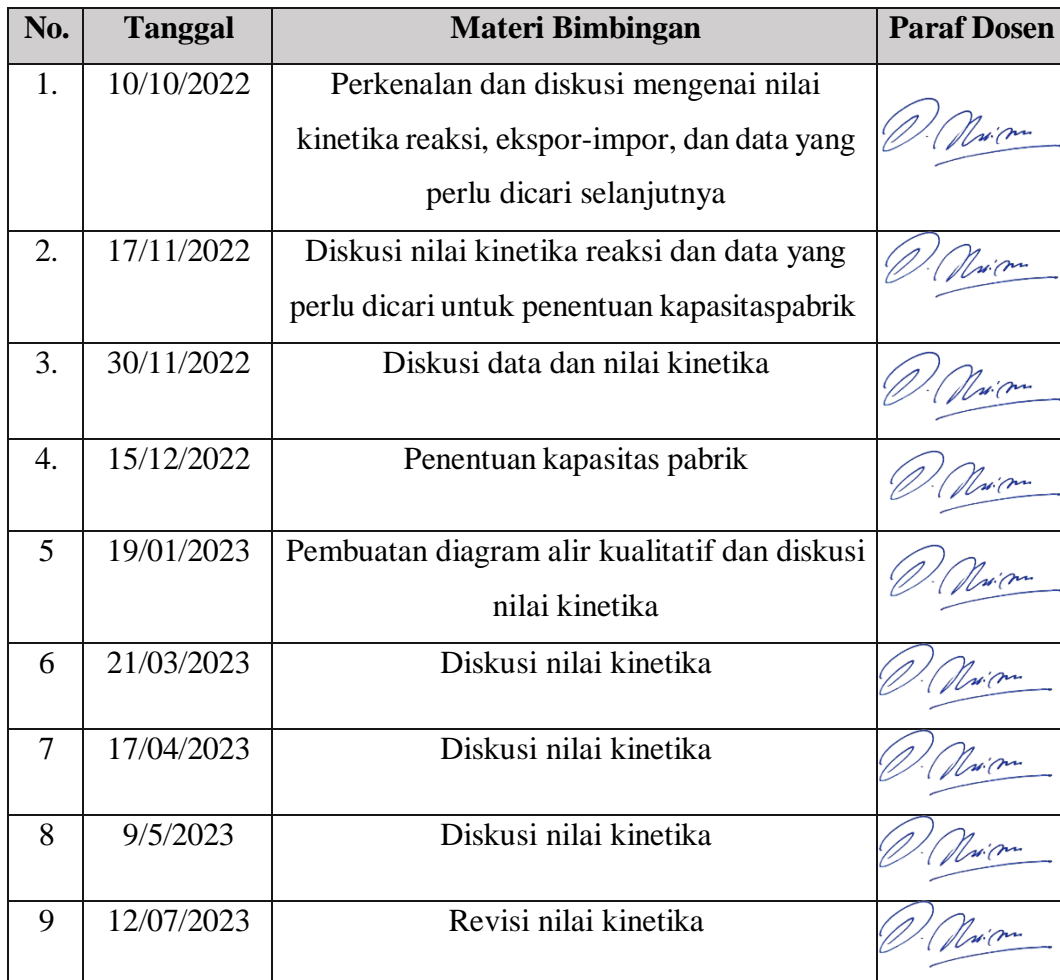 No. Tanggal Materi Bimbingan Paraf Dosen
1. 10/10/2022 Perkenalan dan diskusi mengenai nilai
kinetika reaksi, ekspor-impor, dan data yang
perlu dicari selanjutnya
2. 17/11/2022 Diskusi nilai kinetika reaksi dan data yang
perlu dicari untuk penentuan kapasitaspabrik
3. 30/11/2022 Diskusi data dan nilai kinetika
4. 15/12/2022 Penentuan kapasitas pabrik
5 19/01/2023 Pembuatan diagram alir kualitatif dan diskusi
nilai kinetika
6 21/03/2023 Diskusi nilai kinetika
7 17/04/2023 Diskusi nilai kinetika
8 9/5/2023 Diskusi nilai kinetika
9 12/07/2023 Revisi nilai kinetika